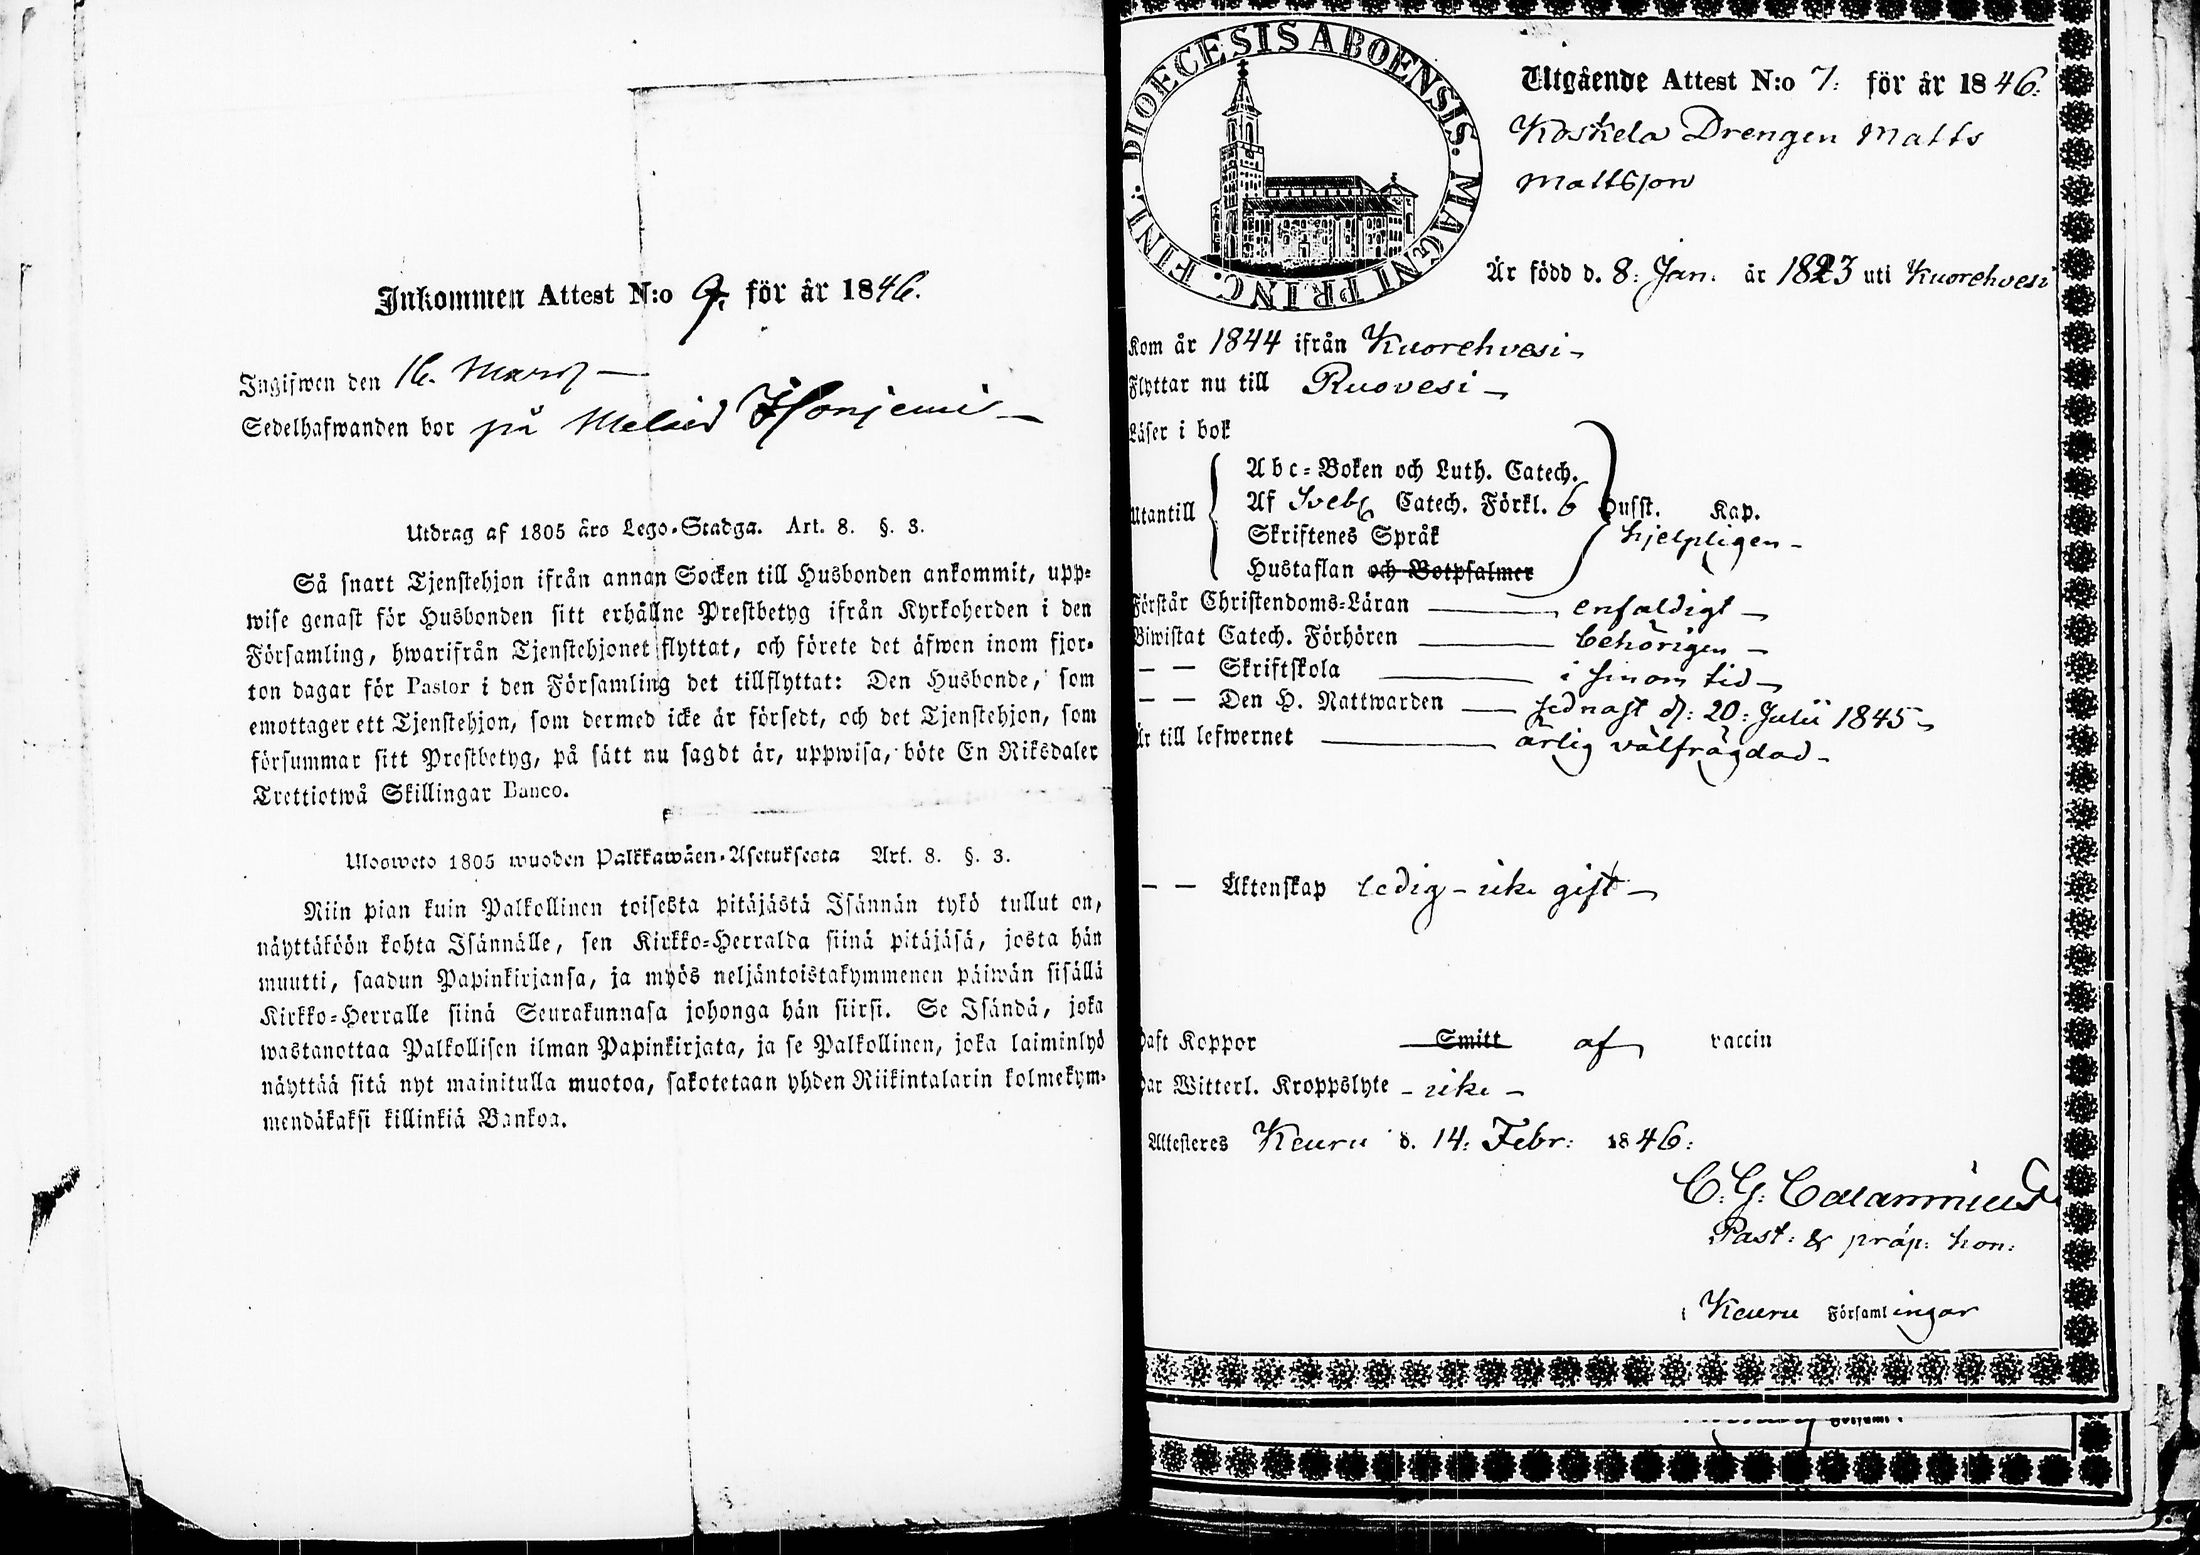 Inkommen Attest N:o 9. för år 1846.
Ingifwen den 16. Mars
Sedelhafwanden bor på
Utdrag af 1805 års Lego-Stadga. Art. 8. §. 3.
Så snart Tjenstehjon ifrån annan Socken till Husbonden ankommit, upp-
wise genast för Husbonden sitt erhållne Prestbetyg ifrån Kyrkoherden i den
Församling, hwarifrån Tjenstehjonet flyttat, och förete det äfwen inom fjor-
ton dagar för Pastor i den Församling det tillflyttat: Den Husbonde, som
emottager ett Tjenstehjon, som dermed icke är försedt, och det Tjenstehjon, som
försummar sitt Prestbetyg, på sätt nu sagdt är, uppwisa, böte En Riksdaler
Trettiotwå Skillingar Banco.
Ulosweto 1805 wuoden Palkkawäen-Asetuksesta Art. 8. §. 3.
Niin pian kuin Palkollinen toisesta pitäjästä Isännän tykö tullut on,
näyttäköön kohta Isännälle, sen Kirkko-Herralda siinä pitäjäsä, josta hän
muutti, saadun Papinkirjansa, ja myös neljäntoistakymmenen päiwän sisällä
Kirkko-Herralle siinä Seurakunnasa johonga hän siirsi. Se Isändä, joka
wastanottaa Palkollisen ilman Papinkirjata, ja se Palkollinen, joka laiminlyö
näyttää sitä nyt mainitulla muotoa, sakotetaan yhden Riikintalarin kolmekym-
mendäkaksi killinkiä Bankoa.
DIOECESIS ABOENSIS. MAGNI PRINC. FINL.
Utgående Attest N:o 7. för år 1846.
Koskela Drengen Matts
Mattsson
Är född d. 8: Jan. år 1823 uti Kuorehvesi
Kom år 1844 ifrån Kuorehvesi
Flyttar nu till Ruovesi
Läser i bok
Utantill
Abc-Boken och Luth. Catech.
Af Sveb. Catech. Förkl. 6 Hufst. Kap.
Skriftenes Språk hjelpligen
Hustaflan och Botpsalmer
Förstår Christendoms-Läran enfaldigt
Biwistat Catech. Förhören behörigen
— — Skriftskola i sinom tid
— — Den H. Nattwarden sednast d: 20: Julii 1845
Är till lefwernet ärlig välfrägdad
— — Äktenskap ledig - icke gift
Haft Koppor Smitt af vaccin
Har Witterl. Kroppslyte icke
Attesteres Keuru d. 14: Febr: 1846:
C: G: Calamnius
Past: & präp: hon:
i Keuru Församlingar